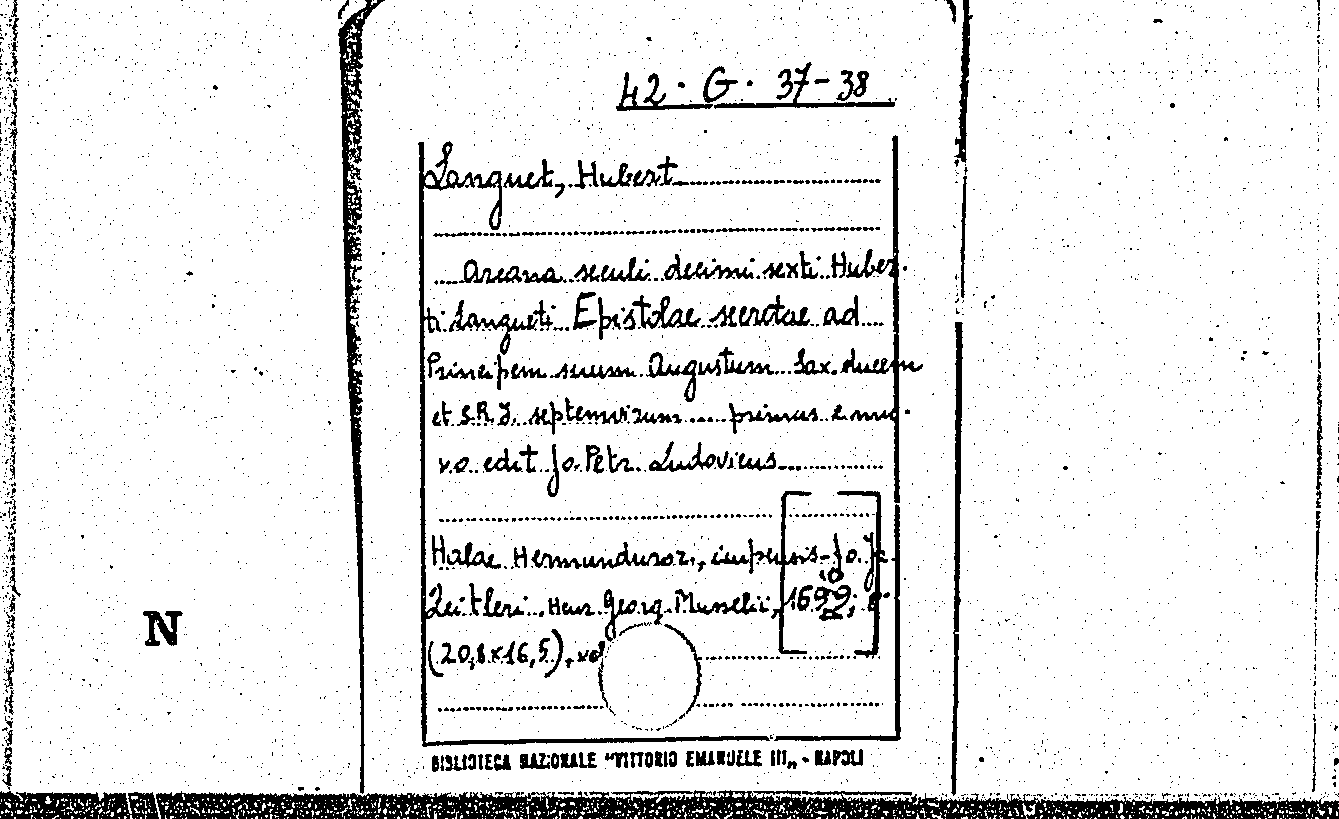 42 · G · 37-38
Languet, Hubert
Arcana seculi decimi sexti Huber-
ti Langueti Epistolae secretae ad
Principem suum Augustum Sax. ducem
et S.R.J. septemvirum..... primus e mu-
v.o. edit Jo. Petr. Ludovicus
Halae Hermunduror., impensis Jo. Je.
Zeitleri, Henr. Georg. Musselii, 1699,
(20,8x16,5).
N
BIBLIOTECA NAZIONALE "VITTORIO EMANUELE III„ - NAPOLI